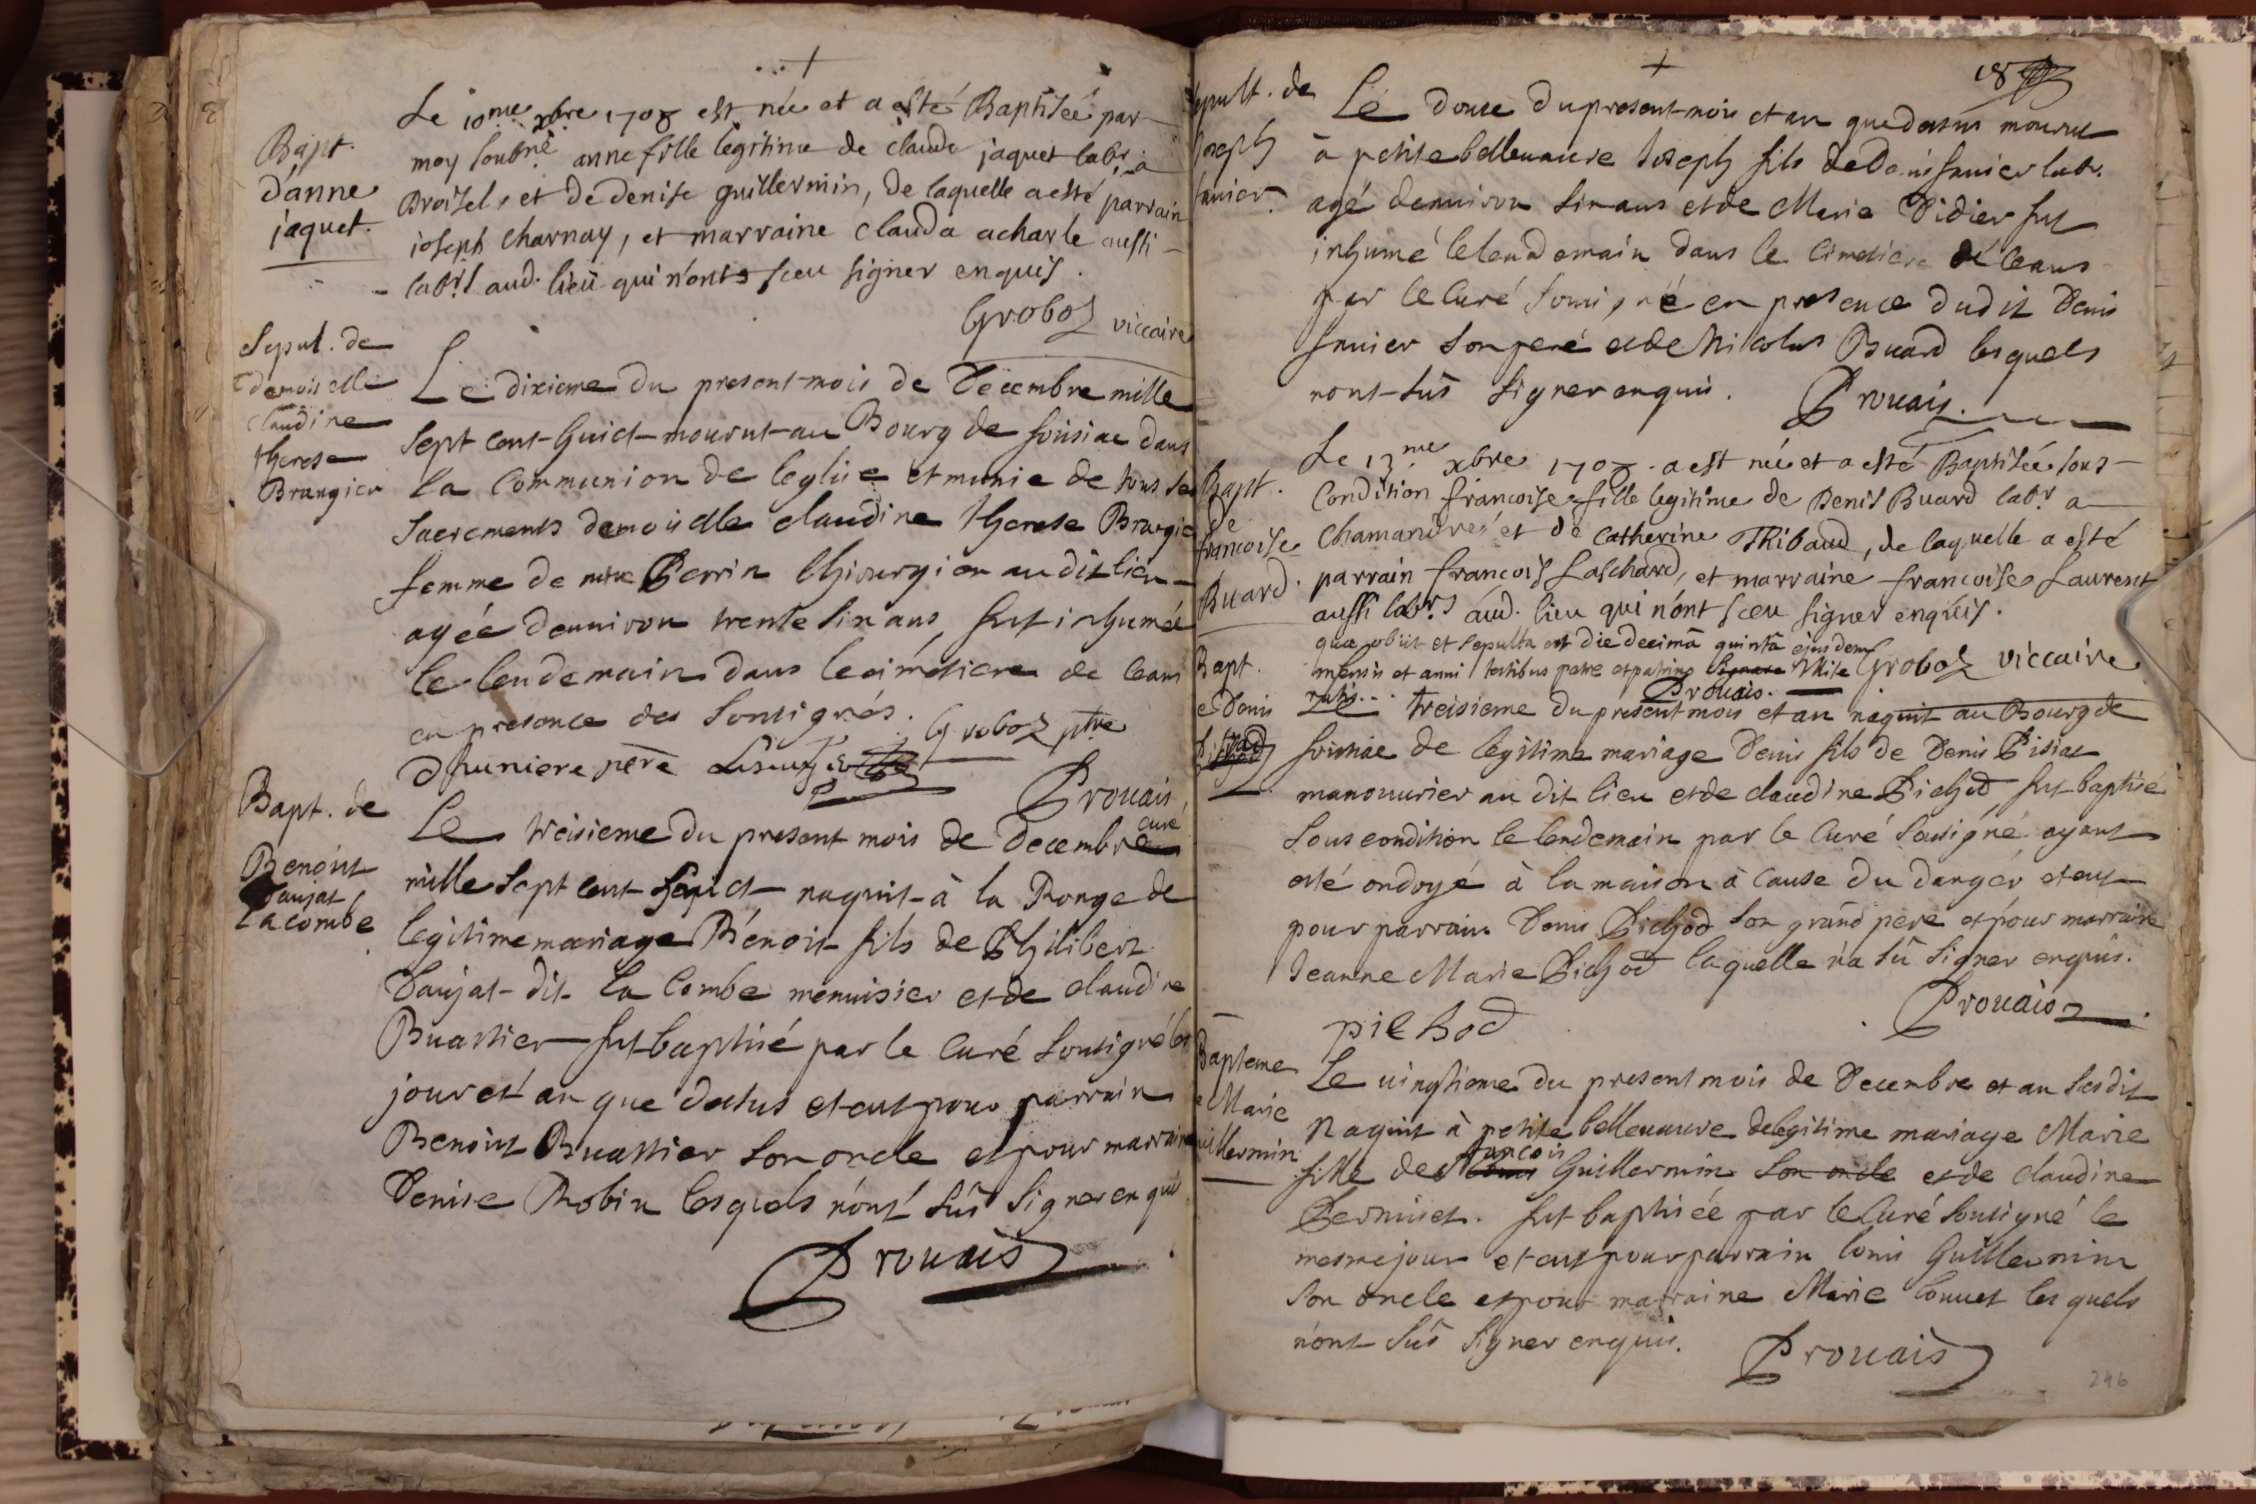 Bapt.
d'anne
jaquet.
Le 10me xbre 1708 est née et a esté Baptisée par
moy soubné anne fille legitime de claude jaquet labr. a
Broisel, et de denise guillermin, de laquelle a esté parrain
ioseph charnay, et marraine clauda acharle aussi
labrs aud. lieu qui n'ont sceu signer enquis.
Groboz viccaire
Sepul. de
demoiselle
claudine
therese
Brangier
Le dixieme du present mois de Decembre mille
sept cent huict mourut au Bourg de soisiae dans
la Communion de leglise et munie de tous les
sacrements demoiselle claudine therese Brangie
femme de mre Perrin Chirurgien au dit lieu
agée denuiron trente six ans, fut inhumée
le lendemain dans le cimetiere de ceans
en presence des Sousignés. Groboz ptre
père
Prouais
curé
Bapt. de
Benoist
Daujat
Lacombe
Le treisieme du present mois de decembre
mille sept cent huict naquit à la Ronge de
legitime mariage Bénoit fils de Philibert
Daujat dit La Combe menuisier et de claudine
Buattier fut baptisé par le Curé Sousigné les
jour et an que dessus et eut pour parrain
Benoist Buattier son oncle et pour marraine
Denise Robin lesquels n'ont sûs signer enquis
Prouais
18
sepult. de
Joseph
sanier.
Le douze du present mois et an que dessus mourut
à petite bellenauve Joseph fils de Denis sanier labr.
agé denuiron six ans et de Marie Didier fut
inhumé le lendemain dans le cimetiere de ceans
par le Curé Sousigné en presence dudit Denis
sanier son pere et de Nicolas Buard lesquels
nont sûs signer enquis. Prouais.
Bapt.
de
francoise
Buard.
Le 13me xbre 1708. a est née et a esté Baptisée sous
Condition francoise fille legitime de Denis Buard labr. a
Chamandré et de Catherine Thibaud, de laquelle a esté
parrain francois Laschard, et marraine francoise Laurent
aussi labrs aud. lieu qui n'ont sceu signer enquis.
quæ obiit et sepulta est die decimâ quintâ ejusdem
mensis et anni testibus patre et patrino Groboz viccaire
Prouais.
Bapt.
e Denis
Le treisieme du present mois et an naquit au Bourg de
soisiae de legitime mariage Denis fils de Denis Pisiae
manouurier au dit lieu et de claudine Pichod fut baptisé
Sous condition le lendemain par le Curé Sousigné, ayant
esté ondoyé à la maison à Cause du danger et eut
pour parrain Denis Pichod son grand pere et pour marraine
Jeanne Marie Pichod laquelle n'a sû signer enquis.
Prouais
pichod
Bapteme
e Marie
uillermin
Le vingtieme du present mois de Decembre et an susdit
Naquit à petite bellenauve de legitime mariage Marie
francois
fille de Guillermin son oncle et de claudine
Perniset. fut baptisée par le Curé Sousigné le
mesme jour et eut pour parrain Louis Guillermin
son oncle et pour marraine Marie Couuet lesquels
n'ont sûs signer enquis.
Prouais
246